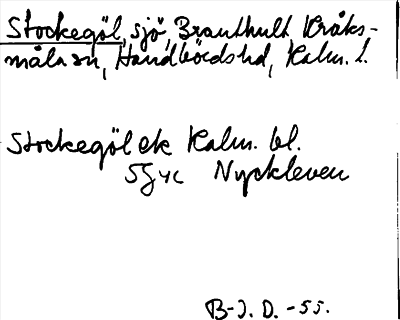 Stockegöl, sjö, Branthult Kråks-
måla sn, Handbördshd, Kalm. l.
Stockegöl ek Kalm. bl.
5G4c Nyckleven
B-J. D. -55.